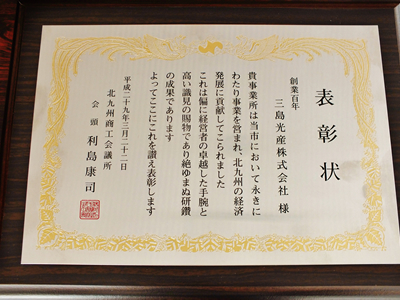 表彰状
創業百年
三島光産株式会社 様
貴事業所は当市において永きに
わたり事業を営まれ、北九州の経済
発展に貢献してこられました
これは偏に経営者の卓越した手腕と
高い識見の賜物であり絶ゆまぬ研鑽
の成果であります
よってここにこれを讃え表彰します
平成二十九年三月二十二日
北九州商工会議所
会頭 利島康司